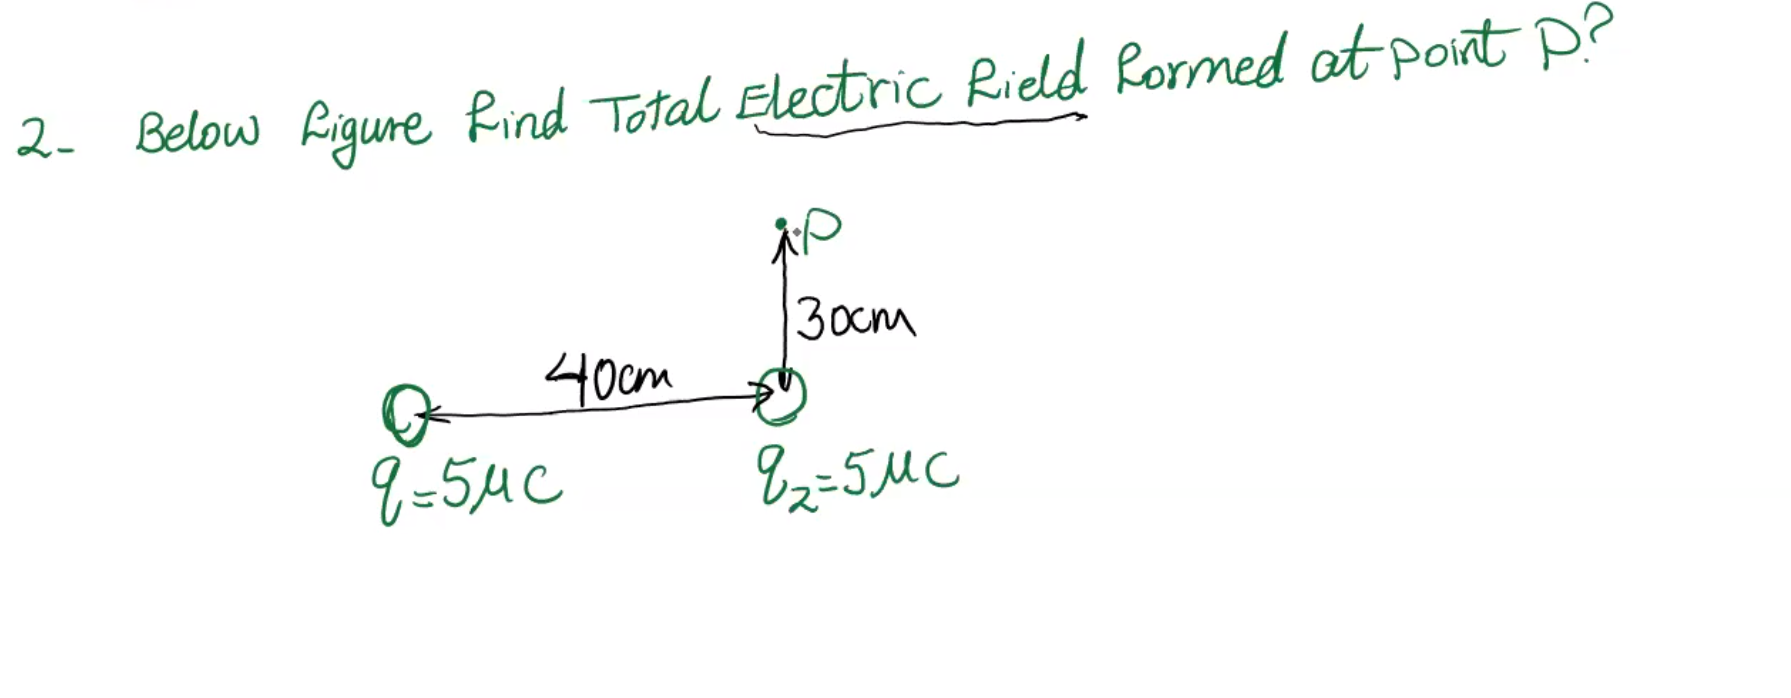 2- Below figure find Total Electric field formed at point P?
P
30cm
40cm
q=5μC q₂=5μC